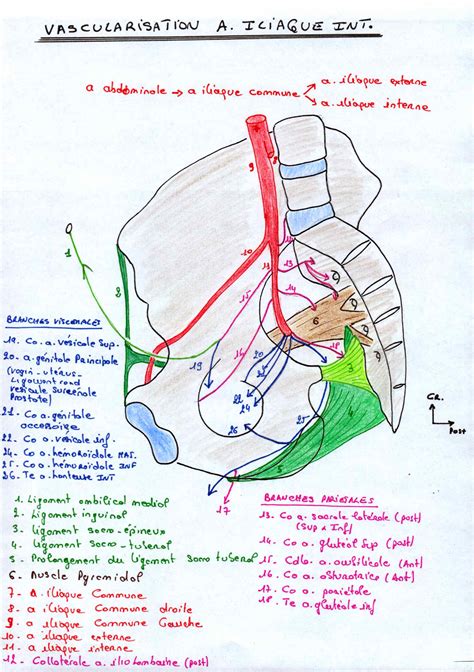 VASCULARISATION A. ILIAQUE INT.
a. iliaque externe
a abdominale → a iliaque commune
a. iliaque interne
BRANCHES VISCERALES
19. Co a. vésicale Sup.
20. a. génitale Principale
(vagin - utérus -
Ligament rond
vésicule Séminale
Prostate)
21. Co a. génitale
accessoire
22. Co a. vésicale inf.
24. Co a. hémoroïdale
25. Co a. hémoroïdale INF
26. Te a. honteuse INT
1. Ligament ombilical medial
2. Ligament inguinal
3. Ligament sacro-épineux
4. Ligament sacro-tuberal
5. Prolongement du ligament sacro tuberal
6. Muscle Pyramidal
7- A. iliaque Commune
8- a iliaque Commune droite
9- a iliaque Commune Gauche
10- a iliaque externe
11- a iliaque interne
12- Collatérale a. ilio Lombaire (post)
BRANCHES PARIETALES
13. Co a. sacrale latérale (post)
(Sup & Inf)
14. Co a. gluteal Sup (post)
15. a. ombilicale (Ant)
16. Co a. obturatrice (Ant)
17. Co a. pariétale
18. Te a. gluteale inf
Cr.
Post
1
8
9
10
11
13
14
15
16
19
20
22
24
26
25
6
18
3
4
5
17